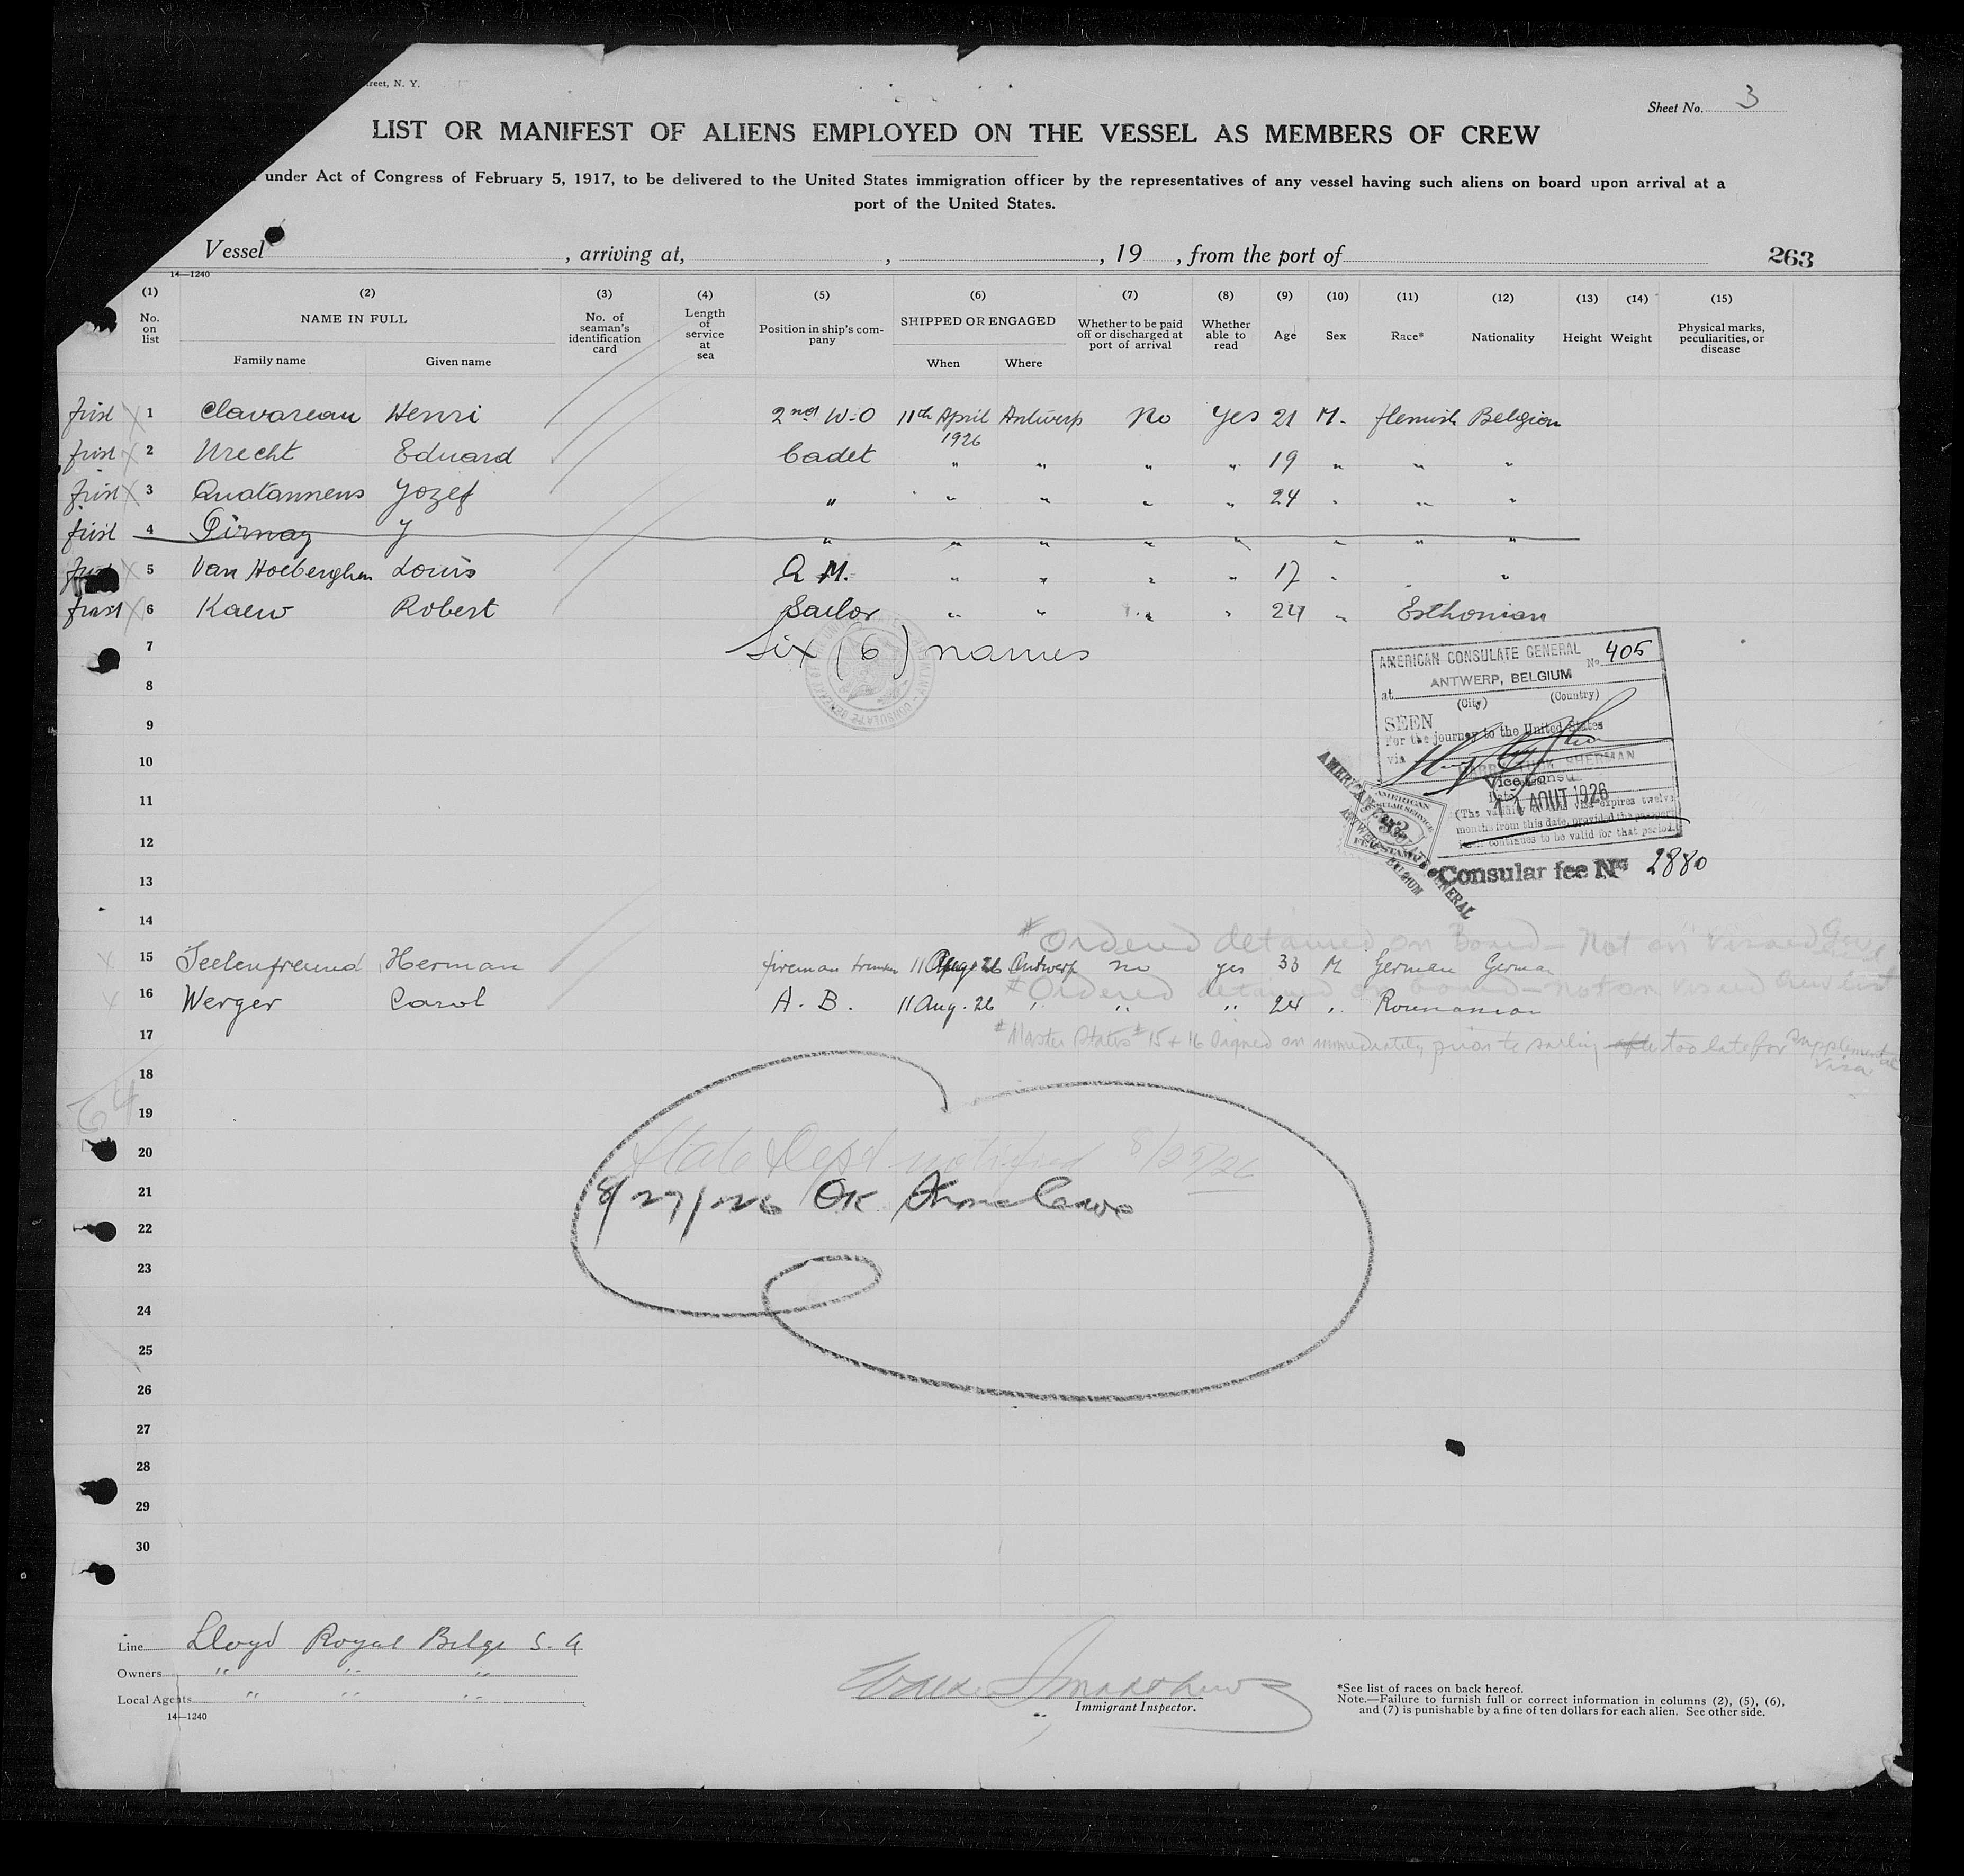 treet, N. Y.
Sheet No. 3
LIST OR MANIFEST OF ALIENS EMPLOYED ON THE VESSEL AS MEMBERS OF CREW
under Act of Congress of February 5, 1917, to be delivered to the United States immigration officer by the representatives of any vessel having such aliens on board upon arrival at a
port of the United States.
Vessel , arriving at, , , 19 , from the port of 263
14—1240
(1) (2) (3) (4) (5) (6) (7) (8) (9) (10) (11) (12) (13) (14) (15)
No. on list NAME IN FULL No. of seaman's identification card Length of service at sea Position in ship's com- pany SHIPPED OR ENGAGED Whether to be paid off or discharged at port of arrival Whether able to read Age Sex Race* Nationality Height Weight Physical marks, peculiarities, or disease
Family name Given name When Where
first 1 Clavareau Henri 2nd W.O 11th April 1926 Antwerp No Yes 21 M. flemish Belgian
first 2 Urecht Eduard Cadet " " " " 19 " " "
first 3 Quatannens Jozef " " " " " 24 " " "
first 4 Pirnay J " " " " " " " "
first 5 Van Hoeberghen Louis Q M. " " " " 17 " "
first 6 Kaew Robert Sailor " " " " 24 " Esthonian
Six (6) names
7
AMERICAN CONSULATE GENERAL No 405
ANTWERP, BELGIUM
at (City) (Country)
SEEN
For the journey to the United States
via
HARRINGTON SHERMAN
Vice Consul
Date 11 AOUT 1926
(The validity of this visa expires twelve
months from this date, provided the passport
continues to be valid for that period.
AMERICAN CONSULATE GENERAL
ANTWERP BELGIUM
AMERICAN CONSULAR SERVICE
FEE STAMP
Consular fee No 2880
8
9
10
11
12
13
14
# Ordered detained on board - Not on visaed Crew List
15 Seelenfreund Herman fireman trimmer 11 Aug. 26 Antwerp no yes 33 M German German
# Ordered detained on board - not on visaed Crew list
16 Werger Carol A. B. 11 Aug. 26 " " " 24 " Roumanian
17
# Master States # 15 + 16 Signed on immediately prior to sailing after too late for supplemental visa
18
64
19
20
State Dept notified 8/25/26
21
8/27/26 OK
22
23
24
25
26
27
28
29
30
Line Lloyd Royal Belge S. A
Owners " " "
Local Agents " " "
14—1240
Immigrant Inspector.
*See list of races on back hereof.
Note.—Failure to furnish full or correct information in columns (2), (5), (6),
and (7) is punishable by a fine of ten dollars for each alien. See other side.